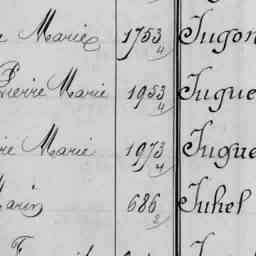 Marie 1753 4 Jugon
Pierre Marie 1953 4 Jugue
re Marie 1973 4 Jugue
Marin 686 2 Juhel